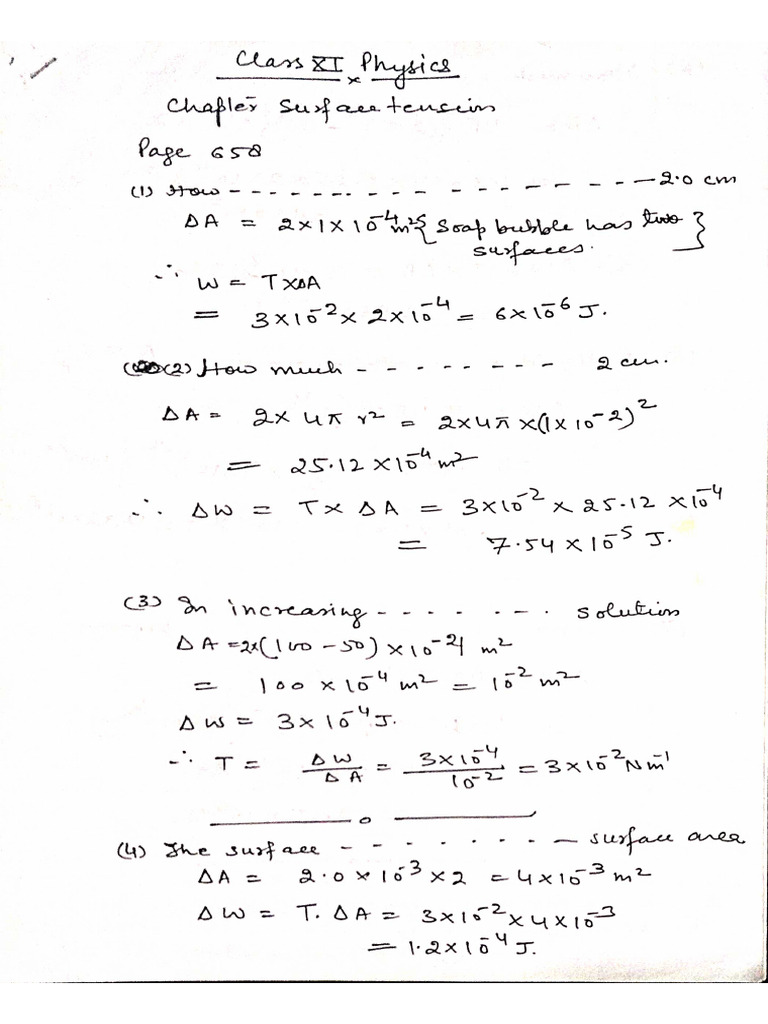 Class XI Physics
x
Chapter Surface tension
Page 658
(1) How - - - - - - - - - - - - - - - - - 2.0 cm
ΔA = 2×1×10⁻⁴m² { Soap bubble has two surfaces. }
∴ W = T×ΔA
= 3×10⁻² × 2×10⁻⁴ = 6×10⁻⁶ J.
(2) How much - - - - - - - - 2 cm.
ΔA = 2× 4π r² = 2×4π ×(1×10⁻²)²
= 25.12 ×10⁻⁴ m²
∴ ΔW = T× ΔA = 3×10⁻² × 25.12 ×10⁻⁴
= 7.54 ×10⁻⁵ J.
(3) In increasing - - - - - - - . solution
ΔA =2×(100 - 50) ×10⁻⁴ m²
= 100 ×10⁻⁴ m² = 10⁻² m²
ΔW = 3×10⁻⁴ J.
∴ T = ΔW/ΔA = 3×10⁻⁴/10⁻² = 3×10⁻² N m⁻¹
o
(4) The surface - - - - - - - - - surface area
ΔA = 2.0×10⁻³ ×2 = 4×10⁻³ m²
ΔW = T. ΔA = 3×10⁻² × 4×10⁻³
= 1.2×10⁻⁴ J.